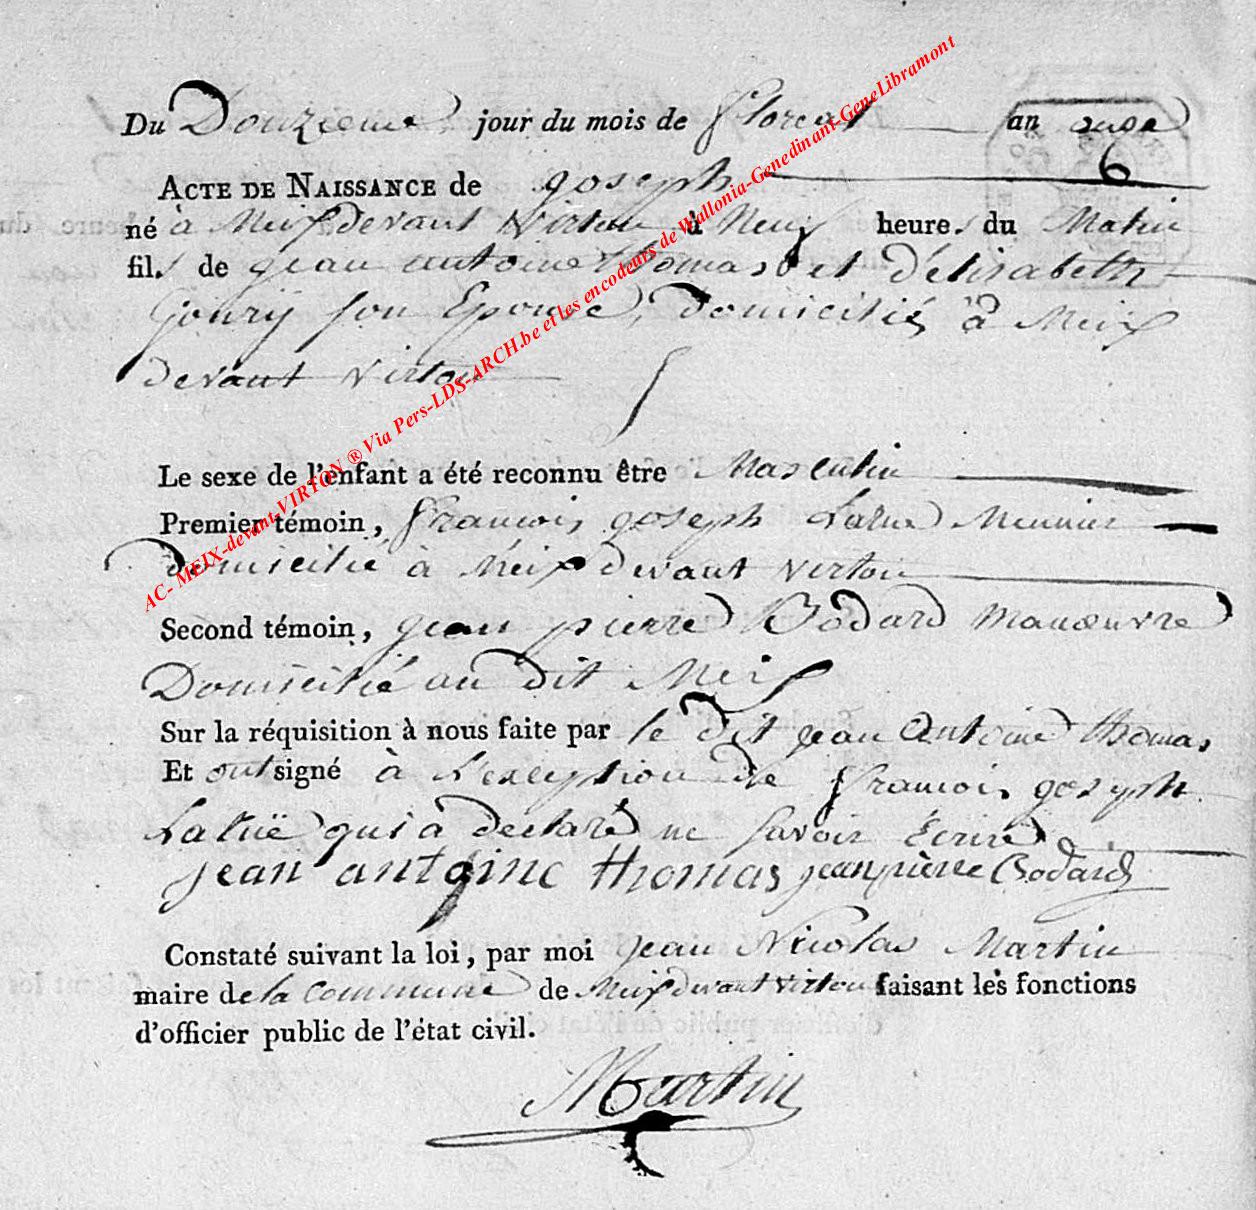 Du Douzieme jour du mois de floreal an onze
6
ACTE DE NAISSANCE de joseph
né à Meix devant Virton à Neuf heures du Matin
fils de jean antoine thomas et d'élisabeth
joury son Epouse, domiciliés à Meix
devant Virton
Le sexe de l'enfant a été reconnu être Masculin
Premier témoin, francois joseph Laruë Meunier
domicilié à Meix devant virton
Second témoin, jean pierre Bodard Manoeuvre
Domicilié au dit Meix
Sur la réquisition à nous faite par le dit jean antoine thomas
Et ont signé à l'exception de francois joseph
Laruë qui a declaré ne savoir Ecrire
jean antoine thomas jean pierre Bodard
Constaté suivant la loi, par moi jean Nicolas Martin
maire de la commune de Meix devant virton faisant les fonctions
d'officier public de l'état civil.
Martin
AC- MEIX-devant-VIRTON ® Via Pers-LDS-ARCH.be et les encodeurs de Wallonia-Genedinant-GeneLibramont